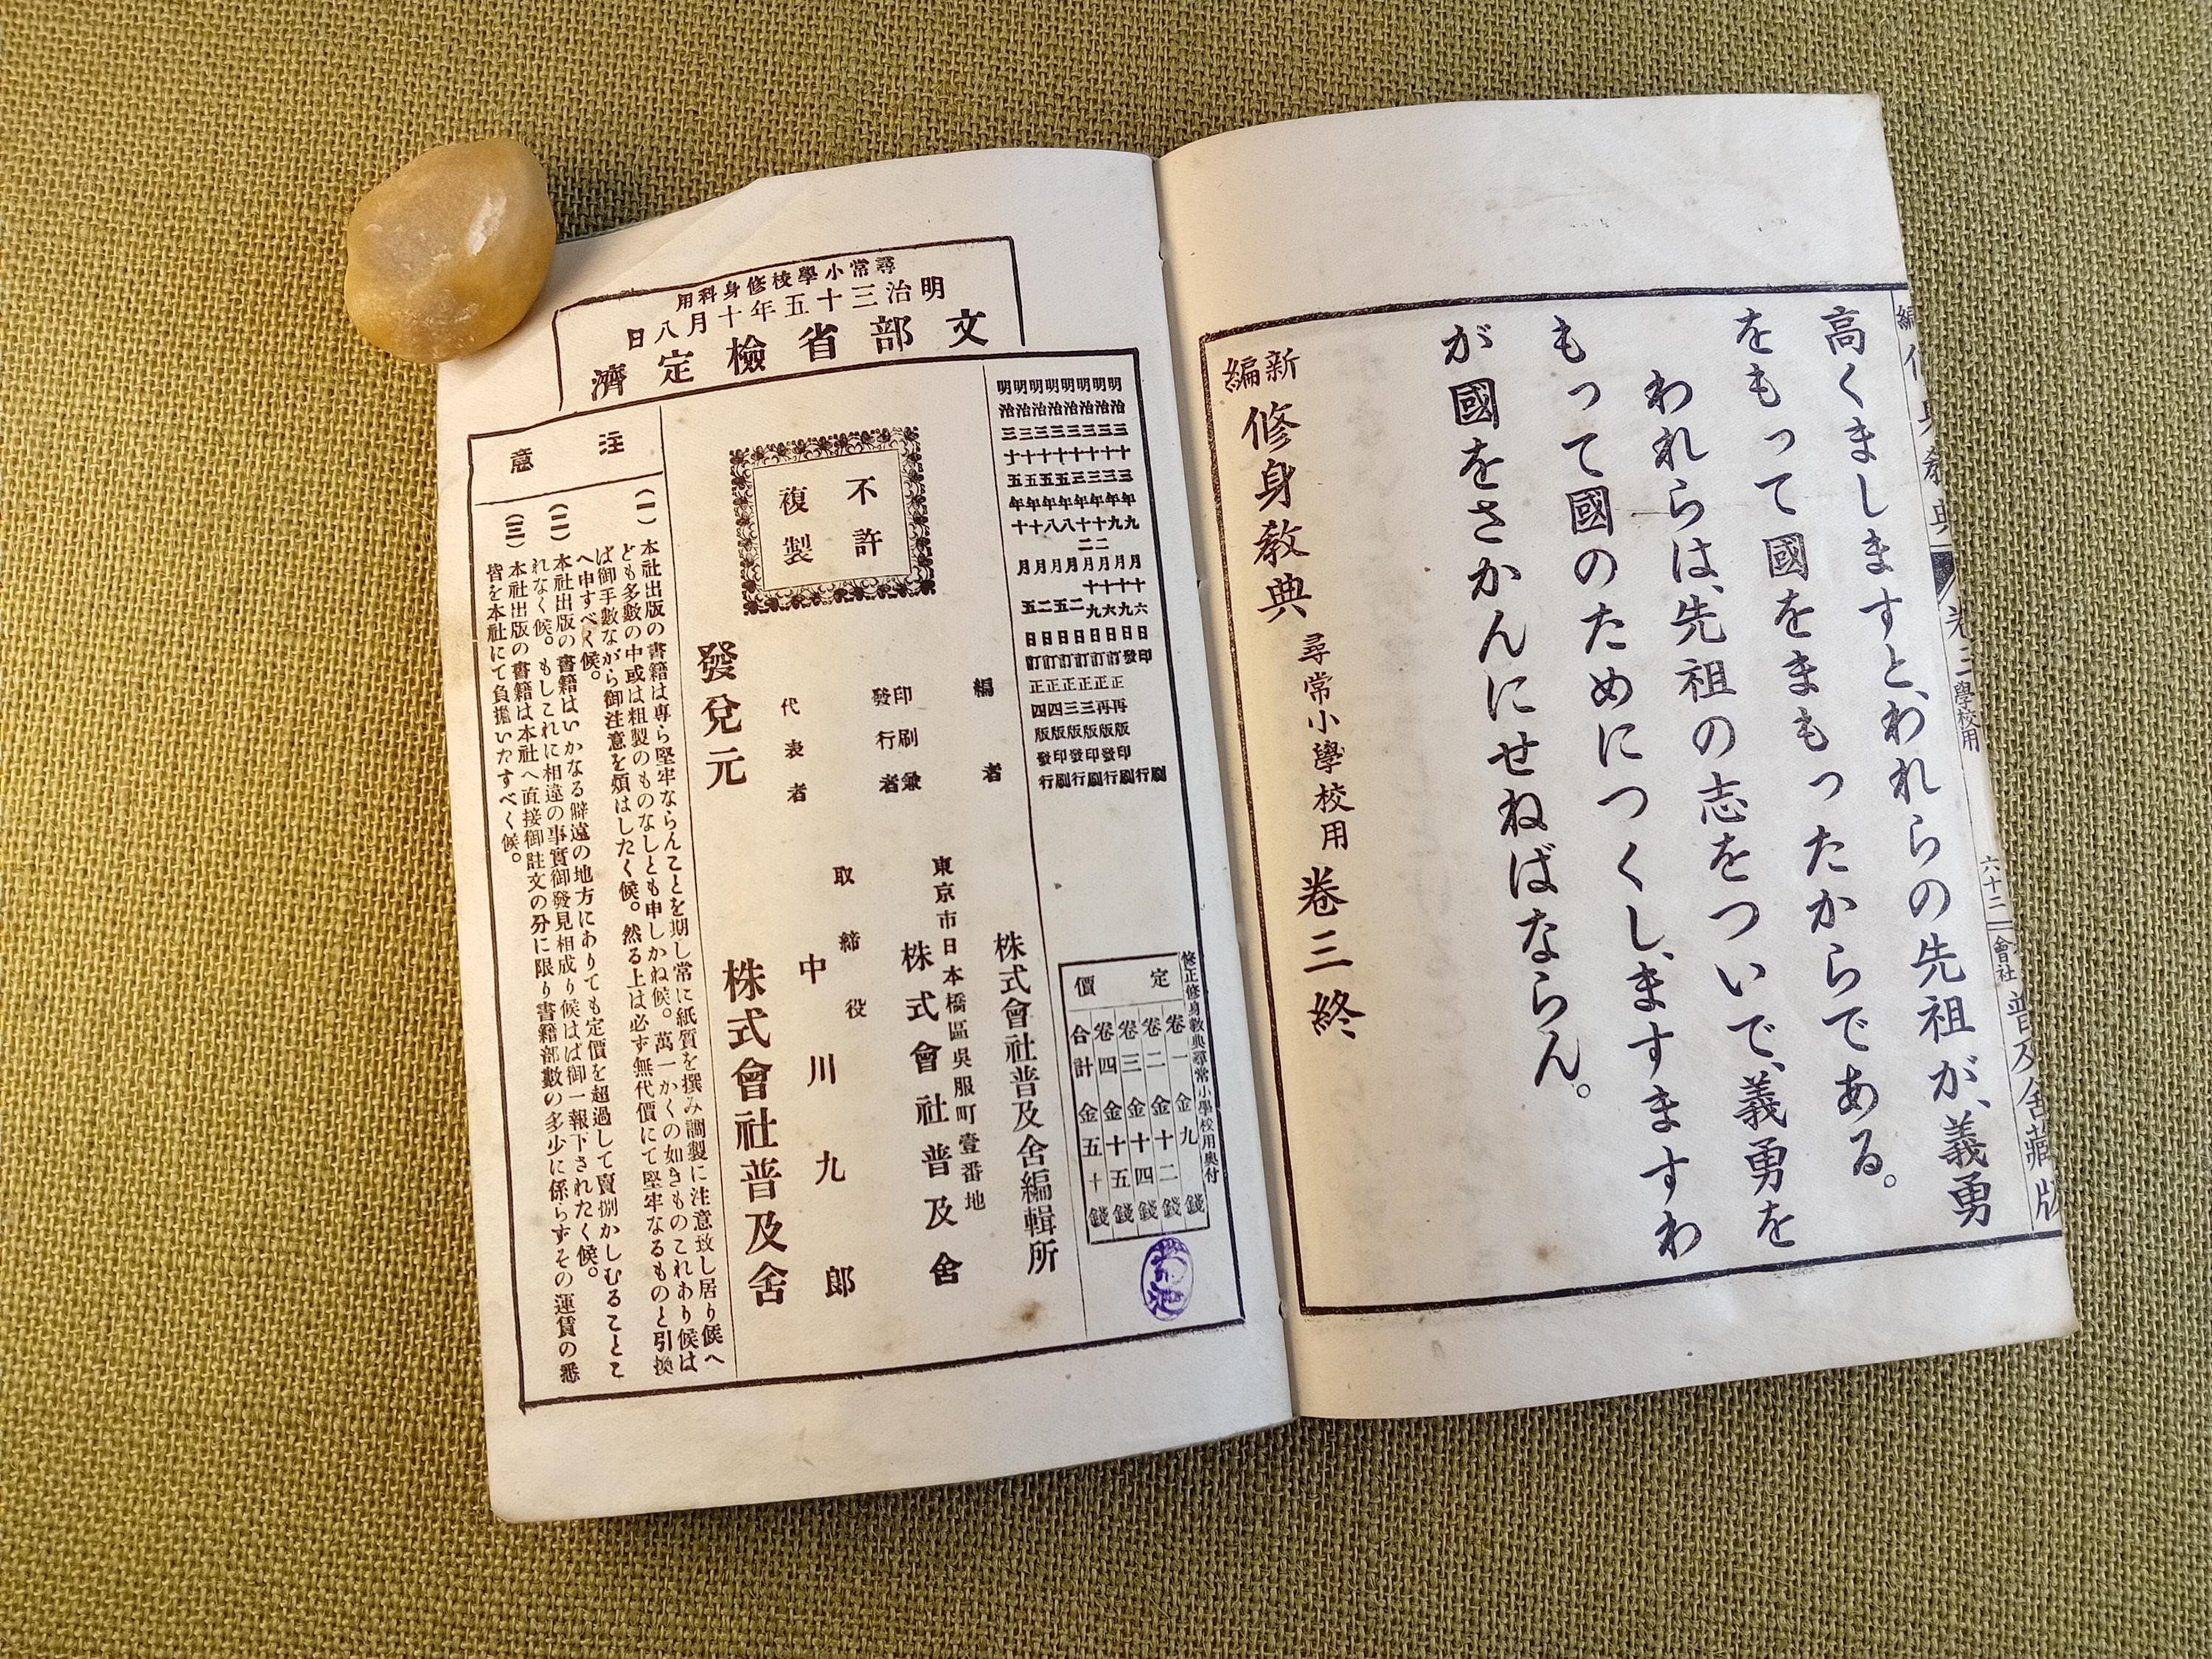 高くましますと、われらの先祖が、義勇
をもって國をまもったからである。
われらは、先祖の志をついで、義勇を
もって國のためにつくし、ますますわ
が國をさかんにせねばならん。
新編 修身教典 尋常小學校用 卷三終
卷三 學校用 六十二 會社 普及舍藏版
尋常小學校修身科用
明治三十五年十月八日
文部省檢定濟
修正修身教典尋常小學校用奥付
定價
卷一 金九錢
卷二 金十二錢
卷三 金十四錢
卷四 金十五錢
合計 金五十錢
明治三十三年九月十六日印刷
明治三十三年九月十九日發行
明治三十三年十二月十六日訂正再版印刷
明治三十三年十二月十九日訂正再版發行
明治三十五年八月二日訂正三版印刷
明治三十五年八月五日訂正三版發行
明治三十五年十月二日訂正四版印刷
明治三十五年十月五日訂正四版發行
編者 株式會社普及舍編輯所
東京市日本橋區吳服町壹番地
印刷兼發行者 株式會社普及舍
代表者 取締役 中川九郎
發兌元 株式會社普及舍
不許
複製
注意
(一)本社出版の書籍は専ら堅牢ならんことを期し常に紙質を撰み調製に注意致し居り候へ
ども多數の中或は粗製のものなしとも申しかね候。萬一かくの如きものこれあり候は
ば御手數ながら御注意を煩はしたく候。然る上は必ず無代價にて堅牢なるものと引換
へ申すべく候。
(二)本社出版の書籍はいかなる僻遠の地方にありても定價を超過して賣捌かしむることこ
れなく候。もしこれに相違の事實御發見相成り候はば御一報下されたく候。
(三)本社出版の書籍は本社へ直接御註文の分に限り書籍部數の多少に係らずその運賃の悉
皆を本社にて負擔いたすべく候。